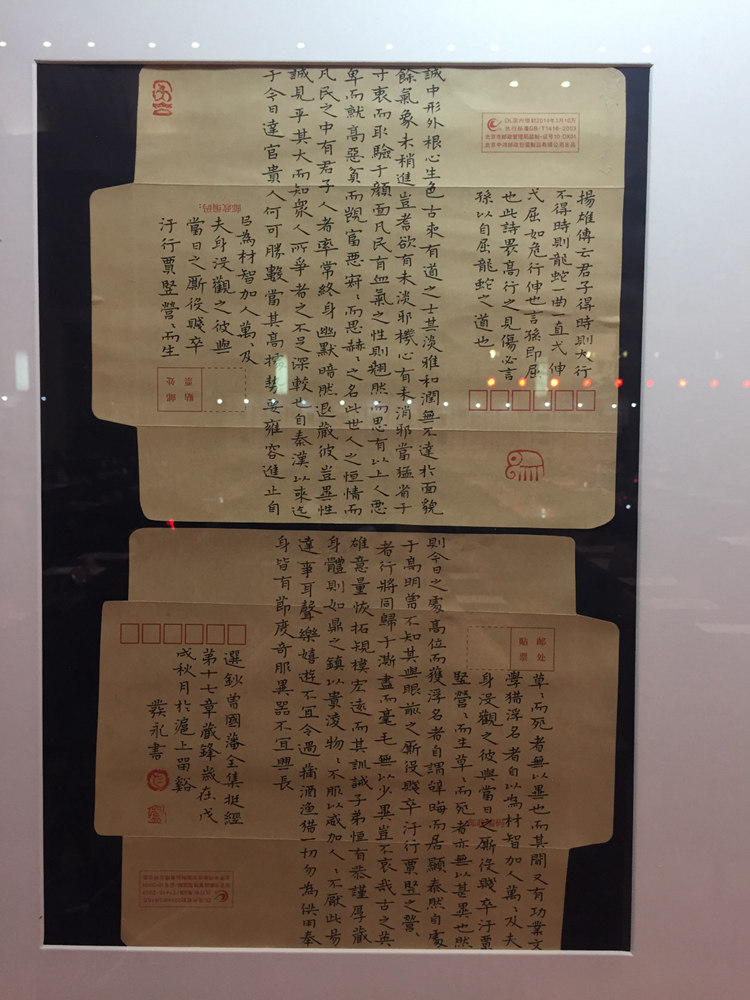 揚雄傳云君子得時則大行
不得時則龍蛇一曲一直弌伸
弌屈如危行伸也言孫即屈
也此詩畏高行之見傷必言
孫以自屈龍蛇之道也
誠中形外根心生色古來有道之士其淡雅和潤無不達於面貌
餘氣象未稍進豈耆欲有未淡邪機心有未消邪當猛省于
寸衷而取驗于顏面凡民有血氣之性則翹然而思有以上人惡
卑而就高惡貧而覬富惡寂〻而思赫〻之名此世人之恒情而
凡民之中有君子人者率常終身幽默暗然退藏彼豈異性
誠見乎其大而知衆人所爭者之不足深較也自秦漢以來迄
于今日達官貴人何可勝數當其高據勢要雍容進止自
㠯為材智加人萬〻及
夫身沒觀之彼與
當日之廝役賤卒
汙行賈豎營〻而生
邮政编码：
贴邮
票处
草〻而死者無以異也而其閒又有功業文
學猎浮名者自以為材智加人萬〻及夫
身沒觀之彼與當日之廝役賤卒汙賈
豎營〻而生草〻而死者亦無以甚異也然
則今日之處高位而獲浮名者自謂辝晦而居顯泰然自處
于高明曾不知其與眼前之廝役賤卒汙行賈豎之營〻
者行將同歸于澌盡而毫毛無以少異豈不哀哉古之英
雄意量恢拓規模宏遠而其訓誡子弟恒有恭謹厚藏
身體則如鼎之鎮以貴淩物〻不服以威加人〻不厭此易
達事耳聲樂嬉遊不宜令過蒱酒漁猎一切勿為供用奉
身皆有節度奇服異器不宜興長
選鈔曾國藩全集挺經
第十七章藏鋒歲在戊
戌秋月於滬上畱谿
龑永書
贴邮
票处